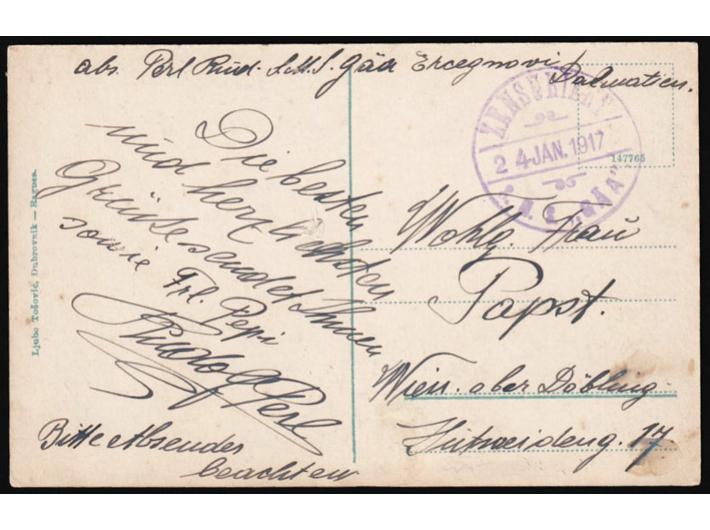 abs. Perl Rud. S.M.S. Gäa Ercegnovi
Dalmatien.
ZENSURIERT
24 JAN. 1917
"S.M.S. GÄA"
147765
Die besten
und herzlichsten
Grüße sendet Ihnen
sowie Frl. Pepi
Rudolf Perl
Bitte Absender
beachten
Wohlg. Frau
Papst.
Wien. ober Döbling
17
Ljubo Tošović, Dubrovnik — Ragusa.